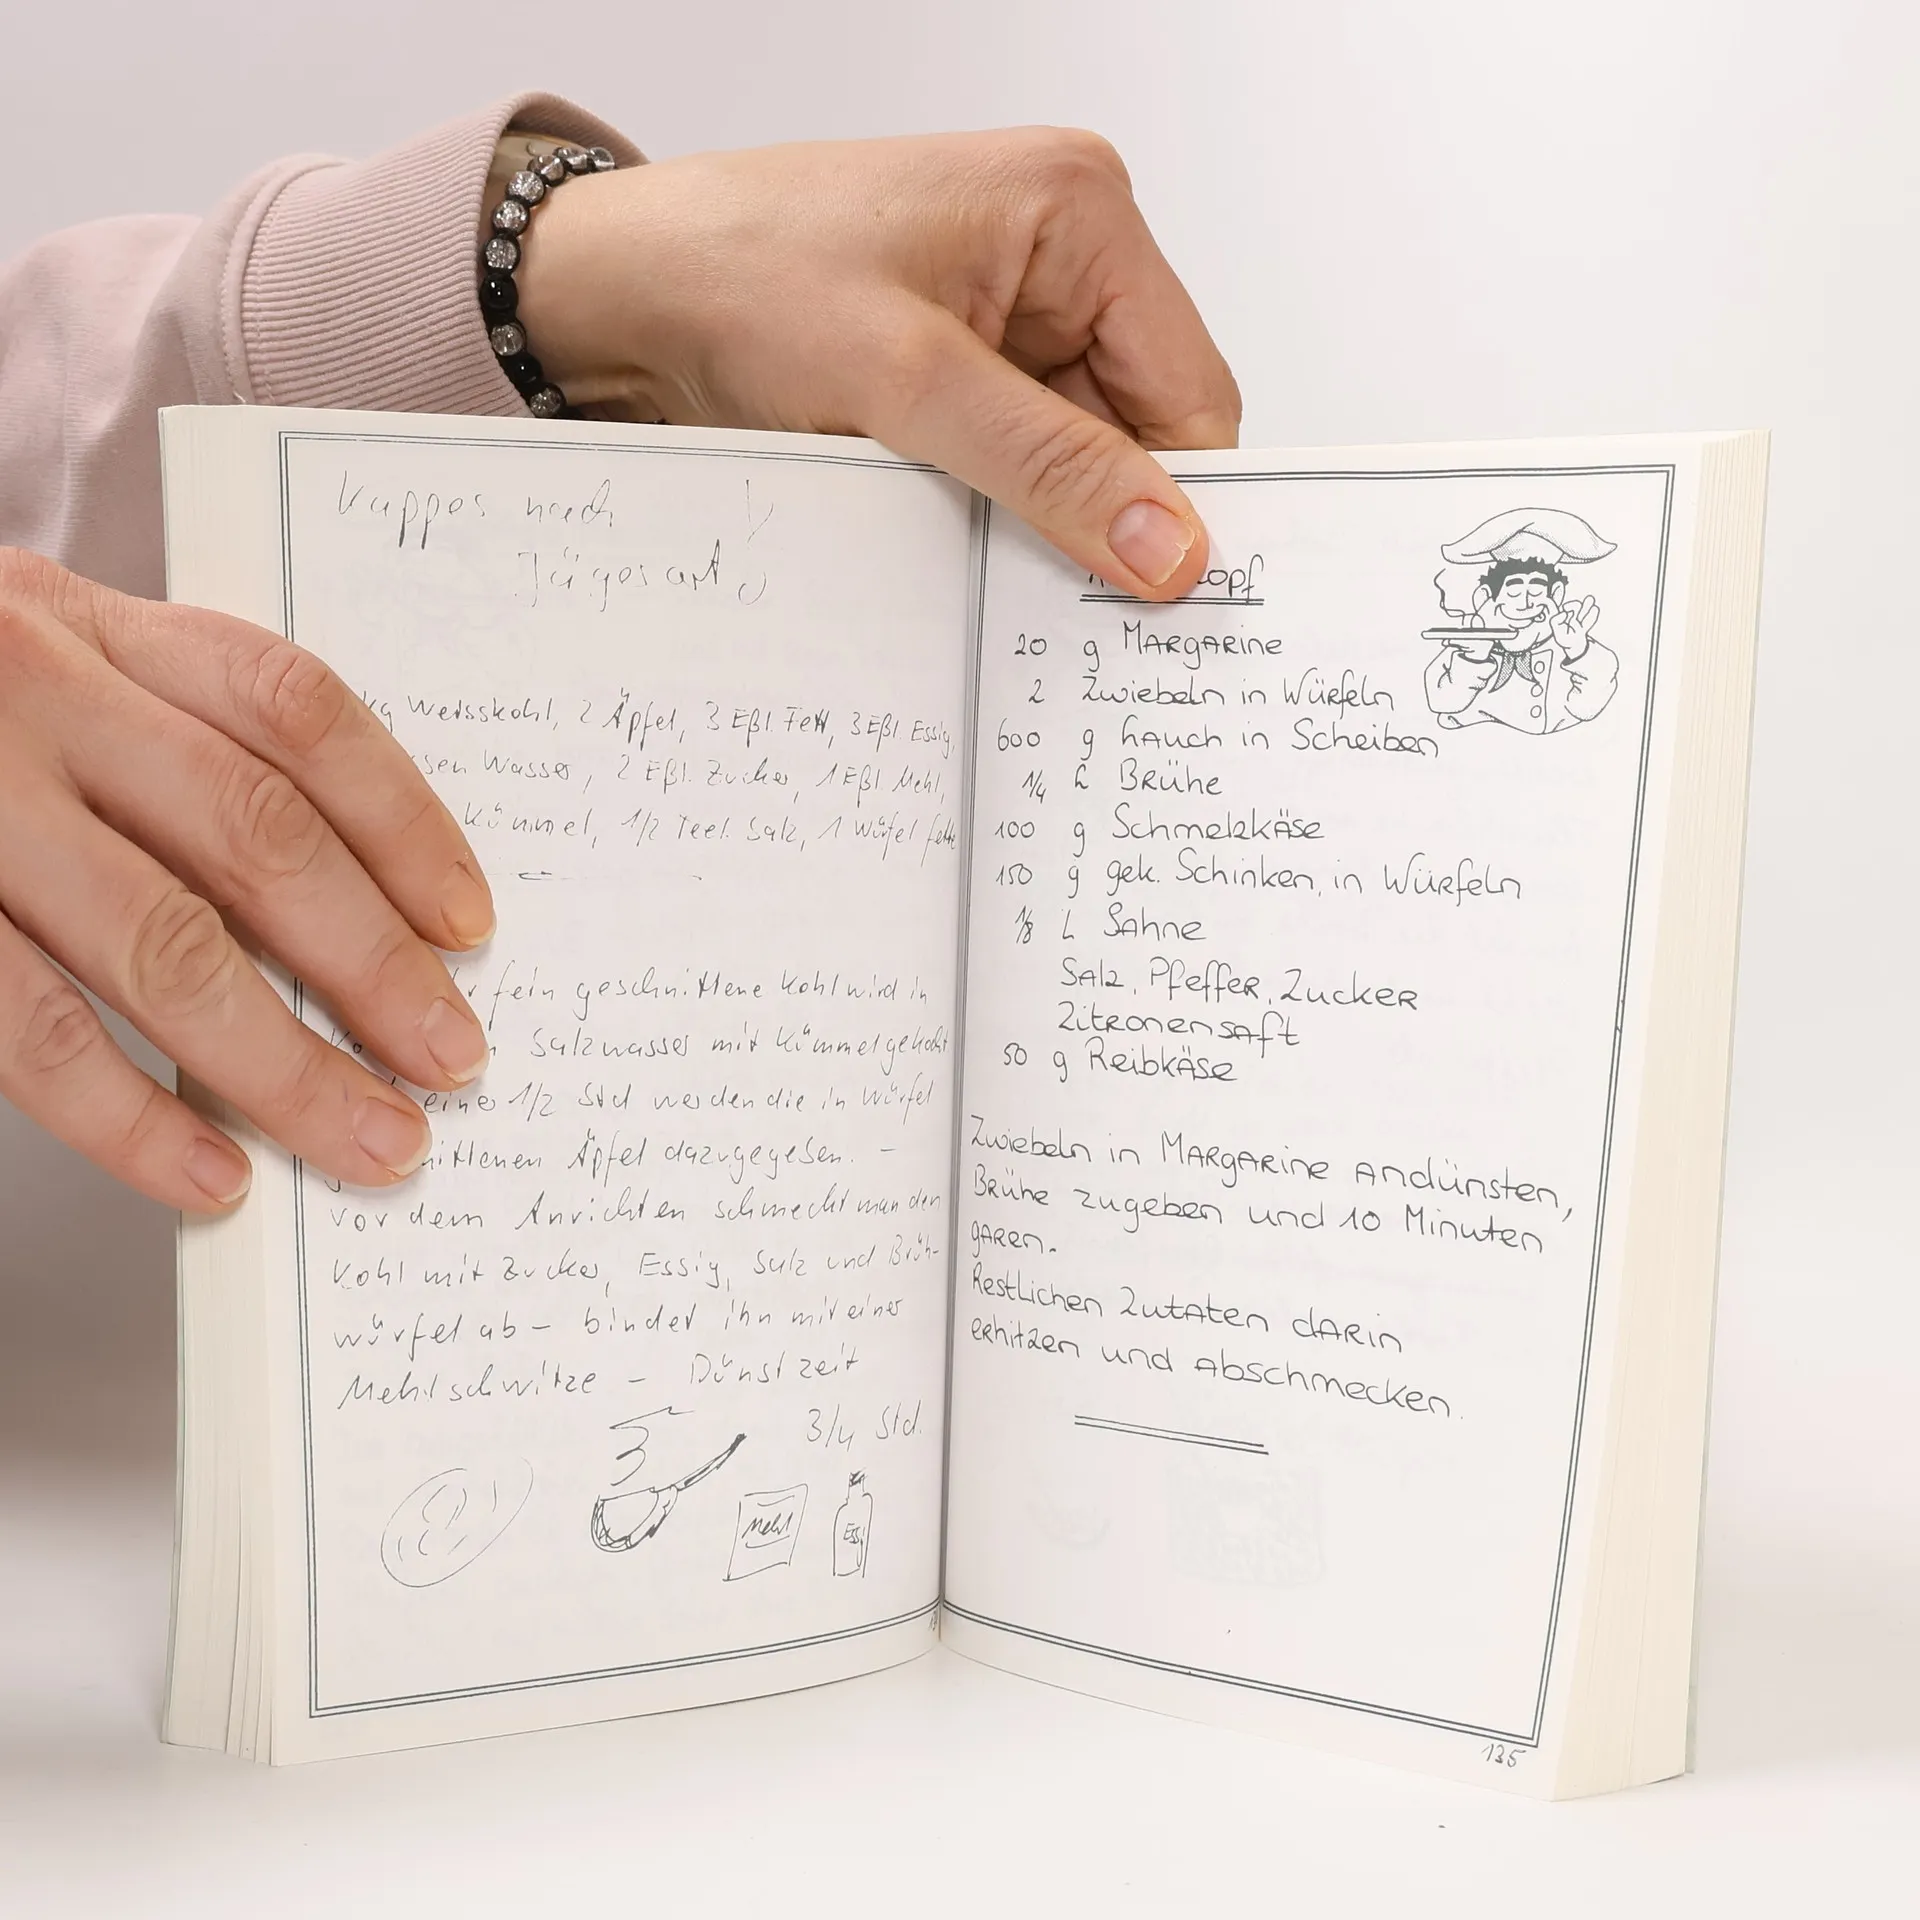 Kappes nach
Jägerart
kg Weisskohl, 2 Äpfel, 3 Eßl. Fett, 3 Eßl. Essig,
Wasser, 2 Eßl. Zucker, 1 Eßl. Mehl,
Kümmel, 1/2 Teel. Salz, 1 Würfel fette
fein geschnittene Kohl wird in
Salzwasser mit Kümmel gekocht
einer 1/2 Std werden die in Würfel
Äpfel dazugegeben. –
vor dem Anrichten schmeckt man den
Kohl mit Zucker, Essig, Salz und Brüh-
würfel ab – bindet ihn mit einer
Mehlschwitze – Dünstzeit
3/4 Std.
Mehl
Essig
20 g Margarine
2 Zwiebeln in Würfeln
600 g Lauch in Scheiben
1/4 L Brühe
100 g Schmelzkäse
150 g gek. Schinken, in Würfeln
1/8 L Sahne
Salz, Pfeffer, Zucker
Zitronensaft
50 g Reibkäse
Zwiebeln in Margarine andünsten,
Brühe zugeben und 10 Minuten
garen.
Restlichen Zutaten darin
erhitzen und abschmecken.
135